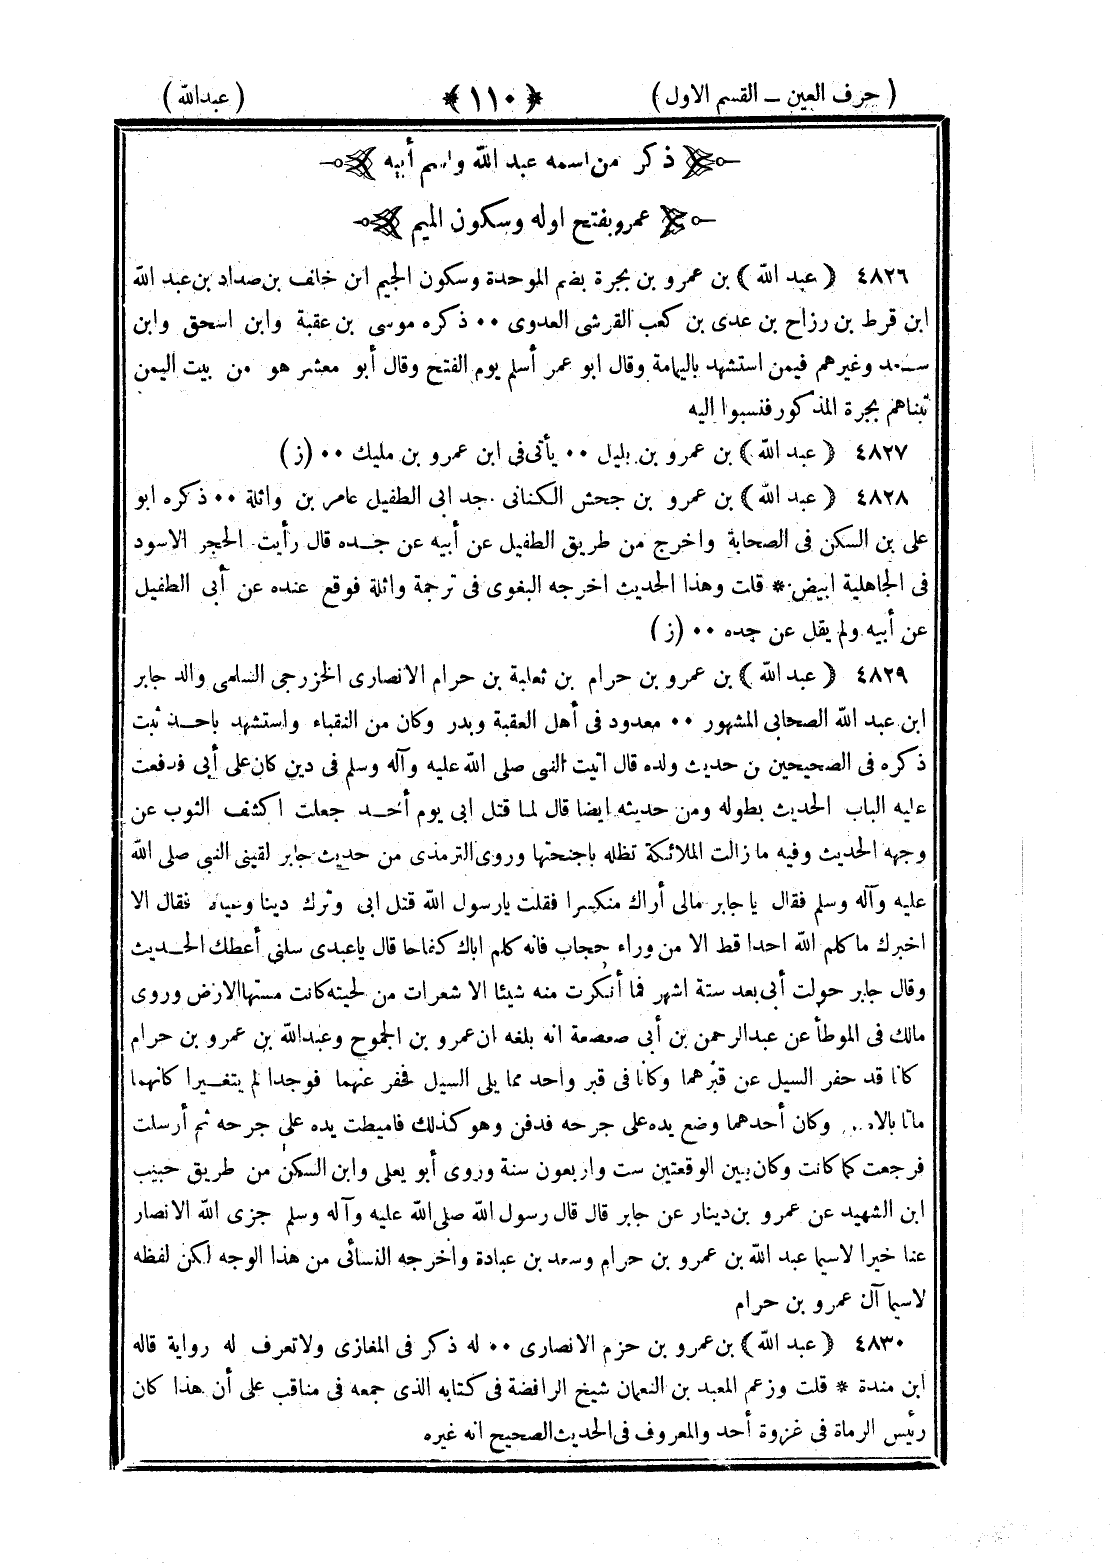 ( حرف العين – القسم الاول ) ﴿ ١١٠ ﴾ ( عبدالله )
ذكر من اسمه عبد الله واسم أبيه
عمرو بفتح اوله وسكون الميم
٤٨٢٦ ﴿ عبد الله ﴾ بن عمرو بن بجرة بضم الموحدة وسكون الجيم ابن خلف بن صداد بن عبد الله
ابن قرط بن رزاح بن عدى بن كعب القرشى العدوى ٠٠ ذكره موسى بن عقبة وابن اسحق وابن
سعد وغيرهم فيمن استشهد باليمامة وقال ابو عمر أسلم يوم الفتح وقال أبو معشر هو من بيت اليمن
تبناهم بجرة المذكور فنسبوا اليه
٤٨٢٧ ﴿ عبد الله ﴾ بن عمرو بن بليل ٠٠ يأتى فى ابن عمرو بن مليك ٠٠ (ز)
٤٨٢٨ ﴿ عبد الله ﴾ بن عمرو بن جحش الكنانى جد ابى الطفيل عامر بن واثلة ٠٠ ذكره ابو
على بن السكن فى الصحابة واخرج من طريق الطفيل عن أبيه عن جده قال رأيت الحجر الاسود
فى الجاهلية ابيض * قلت وهذا الحديث اخرجه البغوى فى ترجمة واثلة فوقع عنده عن أبى الطفيل
عن أبيه ولم يقل عن جده ٠٠ (ز)
٤٨٢٩ ﴿ عبد الله ﴾ بن عمرو بن حرام بن ثعلبة بن حرام الانصارى الخزرجى السلمى والد جابر
ابن عبد الله الصحابى المشهور ٠٠ معدود فى أهل العقبة وبدر وكان من النقباء واستشهد باحد ثبت
ذكره فى الصحيحين من حديث ولده قال اتيت النبى صلى الله عليه وآله وسلم فى دين كان على أبى فدفعت
عليه الباب الحديث بطوله ومن حديثه ايضا قال لما قتل ابى يوم أحد جعلت اكشف الثوب عن
وجهه الحديث وفيه ما زالت الملائكة تظله باجنحتها وروى الترمذى من حديث جابر لقينى النبى صلى الله
عليه وآله وسلم فقال يا جابر مالى أراك منكسرا فقلت يارسول الله قتل ابى وترك دينا وعيالا فقال الا
اخبرك ما كلم الله احدا قط الا من وراء حجاب فانه كلم اباك كفاحا قال ياعبدى سلنى أعطك الحديث
وقال جابر حولت أبى بعد ستة اشهر فما أنكرت منه شيئا الا شعرات من لحيته كانت مستها الارض وروى
مالك فى الموطأ عن عبدالرحمن بن أبى صعصعة انه بلغه ان عمرو بن الجموح وعبدالله بن عمرو بن حرام
كانا قد حفر السيل عن قبرهما وكانا فى قبر واحد مما يلى السيل فحفر عنهما فوجدا لم يتغيرا كانهما
ماتا بالامس وكان أحدهما وضع يده على جرحه فدفن وهو كذلك فاميطت يده على جرحه ثم أرسلت
فرجعت كما كانت وكان بين الوقعتين ست واربعون سنة وروى أبو يعلى وابن السكن من طريق حبيب
ابن الشهيد عن عمرو بن دينار عن جابر قال قال رسول الله صلى الله عليه وآله وسلم جزى الله الانصار
عنا خيرا لاسيما عبد الله بن عمرو بن حرام وسعد بن عبادة واخرجه النسائى من هذا الوجه لكن لفظه
لاسيما آل عمرو بن حرام
٤٨٣٠ ﴿ عبد الله ﴾ بن عمرو بن حزم الانصارى ٠٠ له ذكر فى المغازى ولا تعرف له رواية قاله
ابن مندة * قلت وزعم المعيد بن النعمان شيخ الرافضة فى كتابه الذى جمعه فى مناقب على أن هذا كان
رئيس الرماة فى غزوة أحد والمعروف فى الحديث الصحيح انه غيره